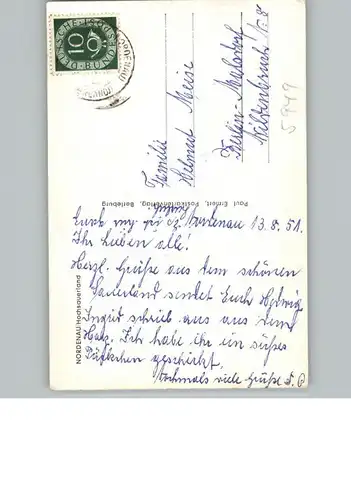 DEUTSCHE BUNDESPOST
10
Familie
Helmut Meise
Berlin-Mahlsdorf
5949
Paul Ernst, Postkartenverlag, Berleburg
NORDENAU/Hochsauerland
Nordenau 13.8.51.
Ihr Lieben alle!
Herzl. Grüße aus dem schönen
Sauerland sendet Euch Hedwig.
Ingrid schrieb aus aus dem
Harz. Ich habe ihr ein süßes
Päckchen geschickt.
Nochmals viele Grüße